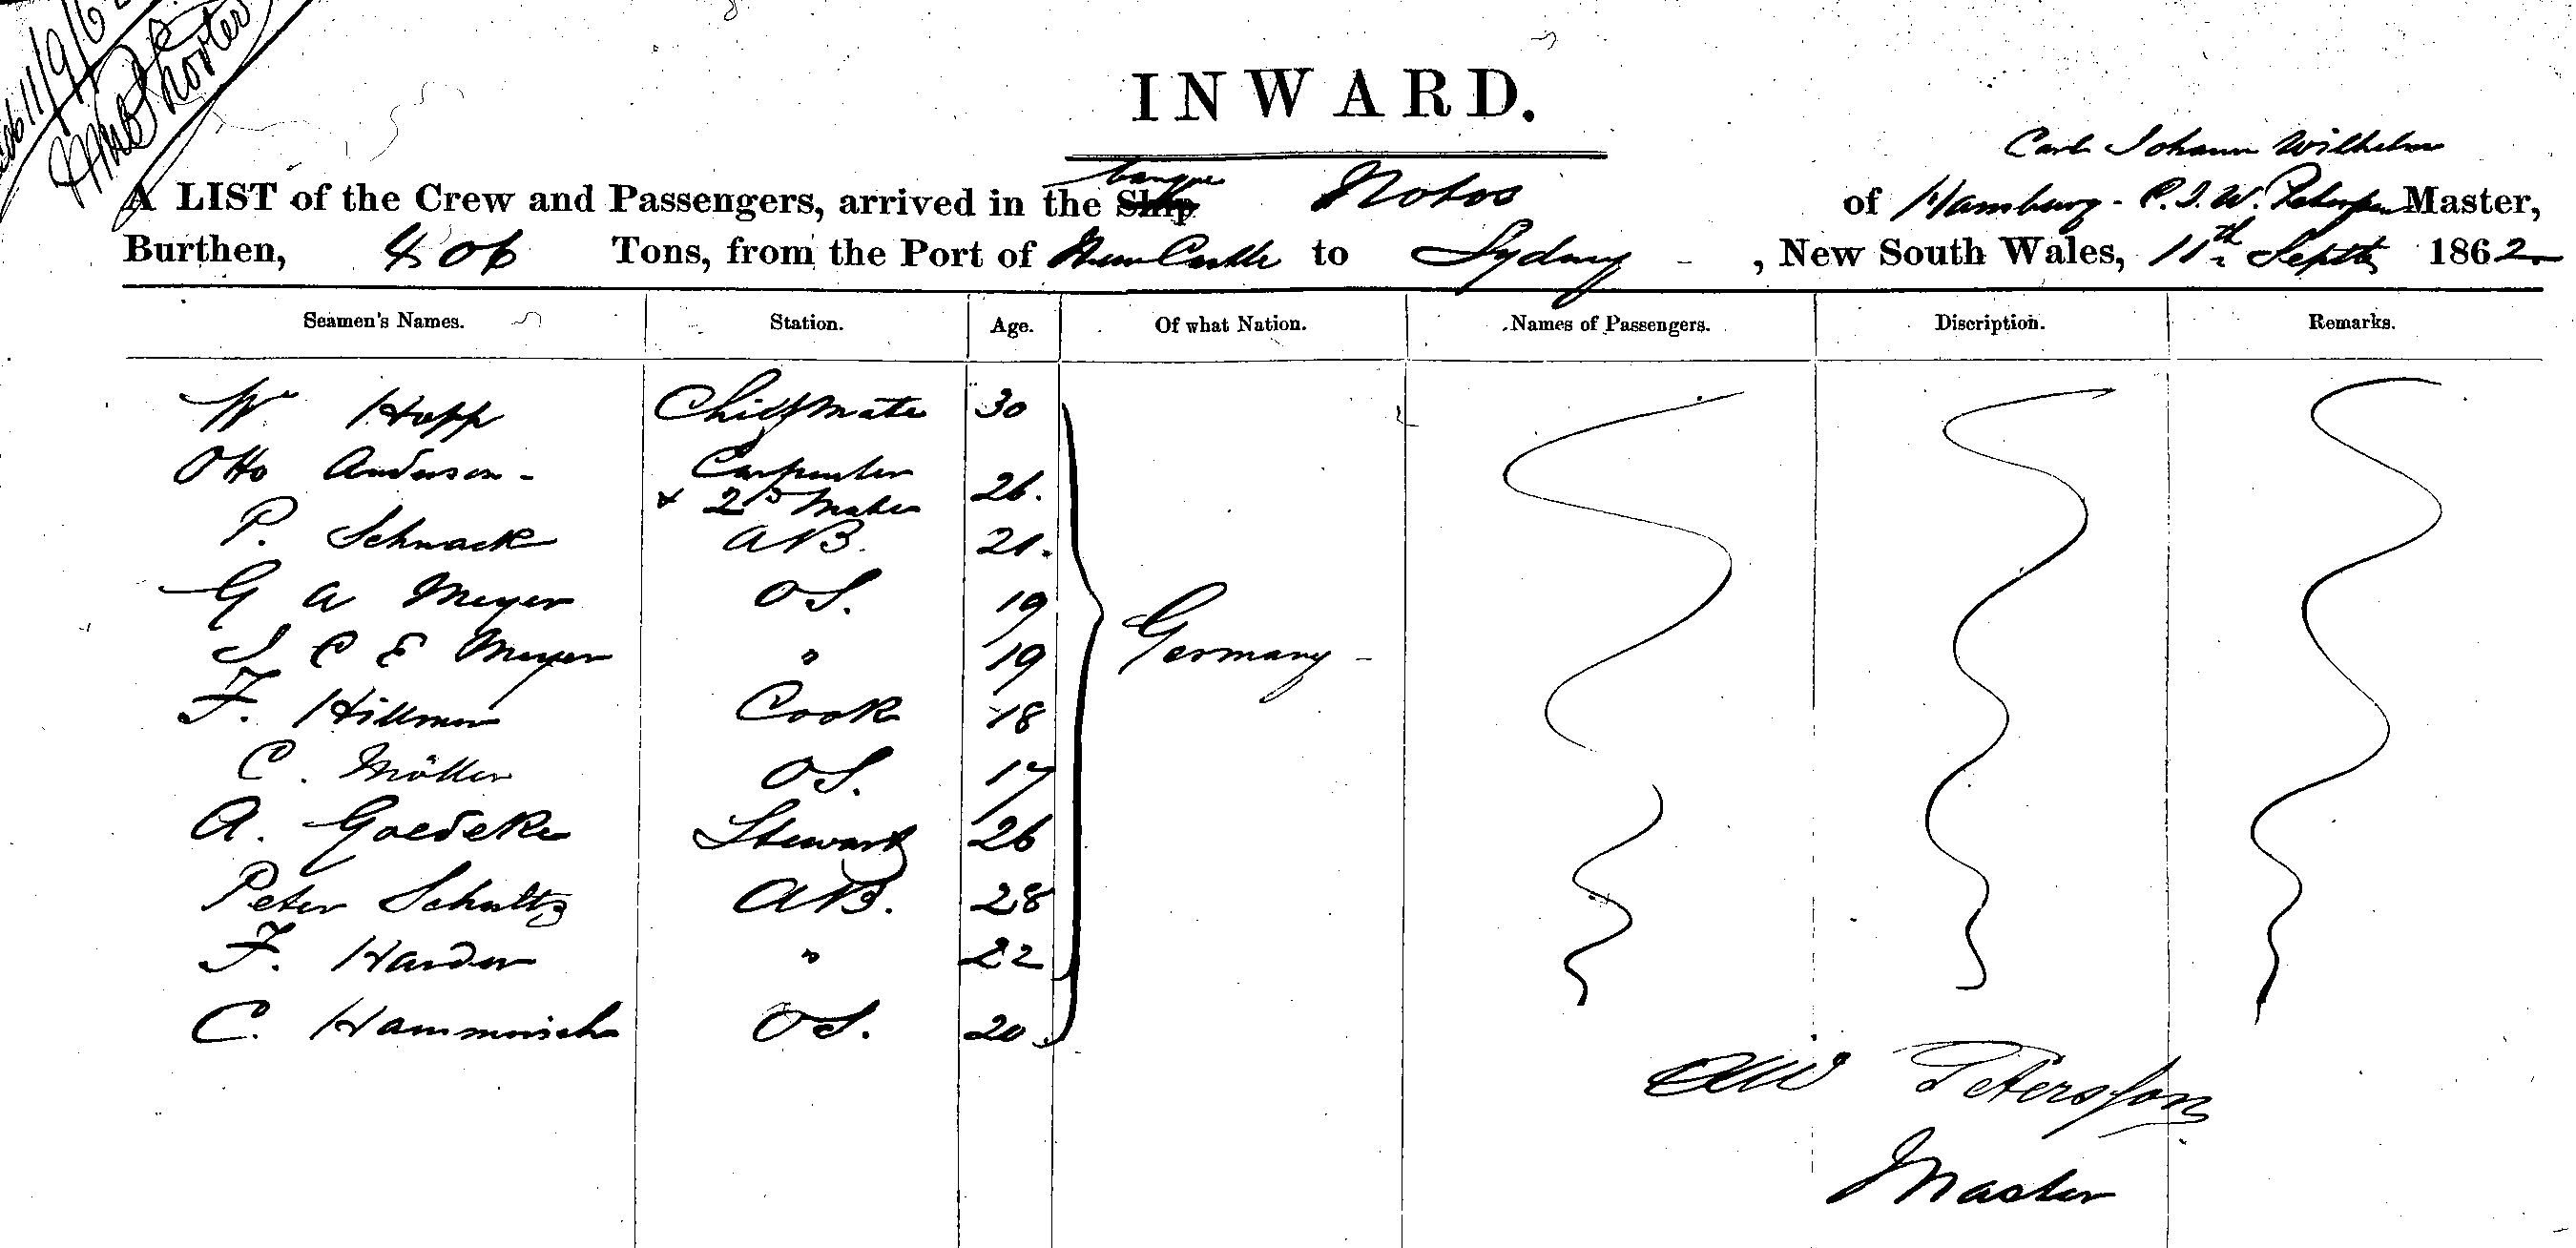 11/9/62
INWARD.
Carl Johann Wilhelm
barque
A LIST of the Crew and Passengers, arrived in the Ship Notos of Hamburg - C. J. W. Peterssen Master,
Burthen, 406 Tons, from the Port of NewCastle to Sydney - , New South Wales, 11th Septr 1862
Seamen's Names. Station. Age. Of what Nation. Names of Passengers. Discription. Remarks.
Wm Hopp Chief Mate 30
Otto Anderson - Carpenter
& 2nd Mate 26.
P. Schnack AB. 21.
G A Meyer OS. 19
J C E Meyer " 19 Germany -
F. Hillmer Cook 18
C. Möller OS. 17
A. Goedeke Steward 26
Peter Schultz AB. 28
F. Harder " 22
C. Hammerich OS. 20
Petersson
Master